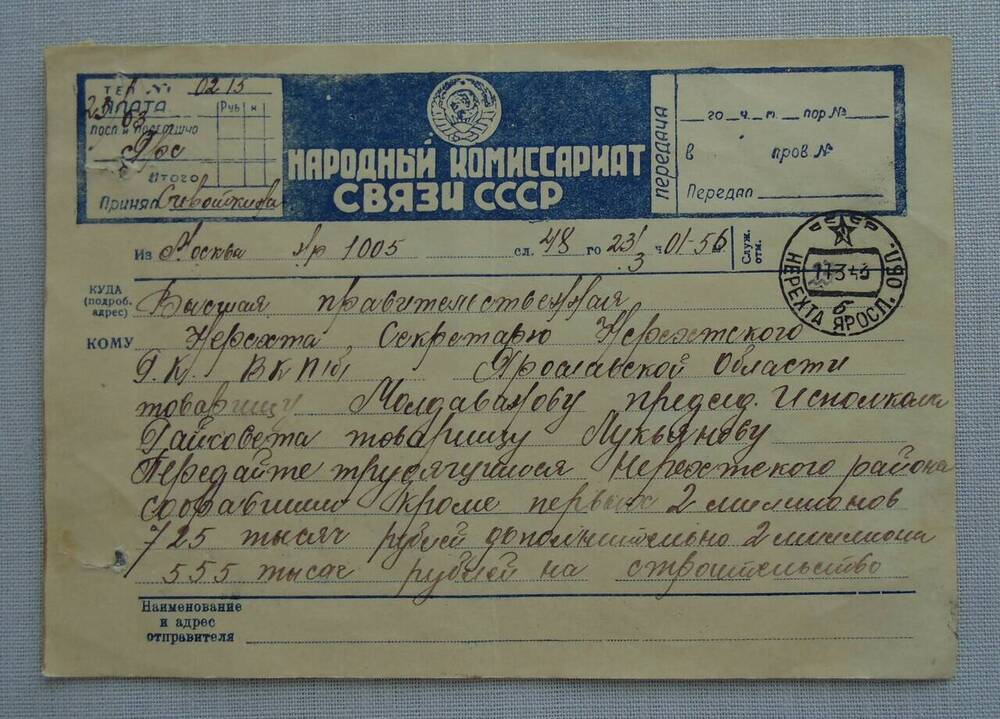 ТЕЛ № 0215
ПЛАТА Руб К
23 63
ИТОГО
Принял
НАРОДНЫЙ КОМИССАРИАТ
СВЯЗИ СССР
ПЕРЕДАЧА
го ч. м. пор №
в пров. №
Передал
Из Москва 1005 сл. 48 го 23/3 ч 01-56 м. Служ. отм.
СССР 6 НЕРЕХТА ЯРОСЛ. ОБЛ.
КУДА (подроб. адрес) Высшая правительственная
КОМУ Нерехта Секретарю Нерехтского
Р.К. ВКПб Ярославской Области
товарищу Молдаванову председ. Исполкома
Райсовета товарищу Лукьянову
Передайте трудящимся Нерехтского района
собравшим кроме первых 2 милионов
725 тысяч рублей дополнительно 2 милиона
555 тысяч рублей на строительство
Наименование
и адрес
отправителя